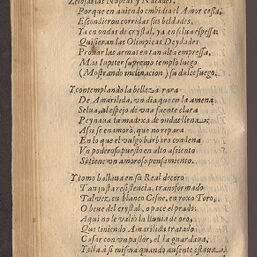 Zelosas las Napeas y Nayades,
Porque en auiendo embidia el Amor cessa,
Escondieron corridas sus beldades.
Ya en ondas de crystal, ya en silua espessa:
Quisieran las Olimpicas Deydades
Prouar las armas en tan alta empressa,
Mas Iupiter supremo templo luego
(Mostrando inclinacion) su dulce fuego.
Y contemplando la belleza rara
De Amarilida, vn dia que en la amena
Selua, al espejo de vna fuente clara
Peynaua la madexa de ondas llena.
Assi se enamorò, que no repara
En lo que el vulgo barbaro condena
Vn poderoso puesto en alto assiento
Si tiene vn amoroso pensamiento.
Y como hallaua en su Real decoro
Tan justa resistencia, transformado
Tal vez, en blanco Cisne, en roxo Toro,
O beue del crystal, o pace el prado:
Aqui no le valio la lluuia de oro,
Que teniendo Amarilida tratado
Casar con vn pastor, el la guardaua,